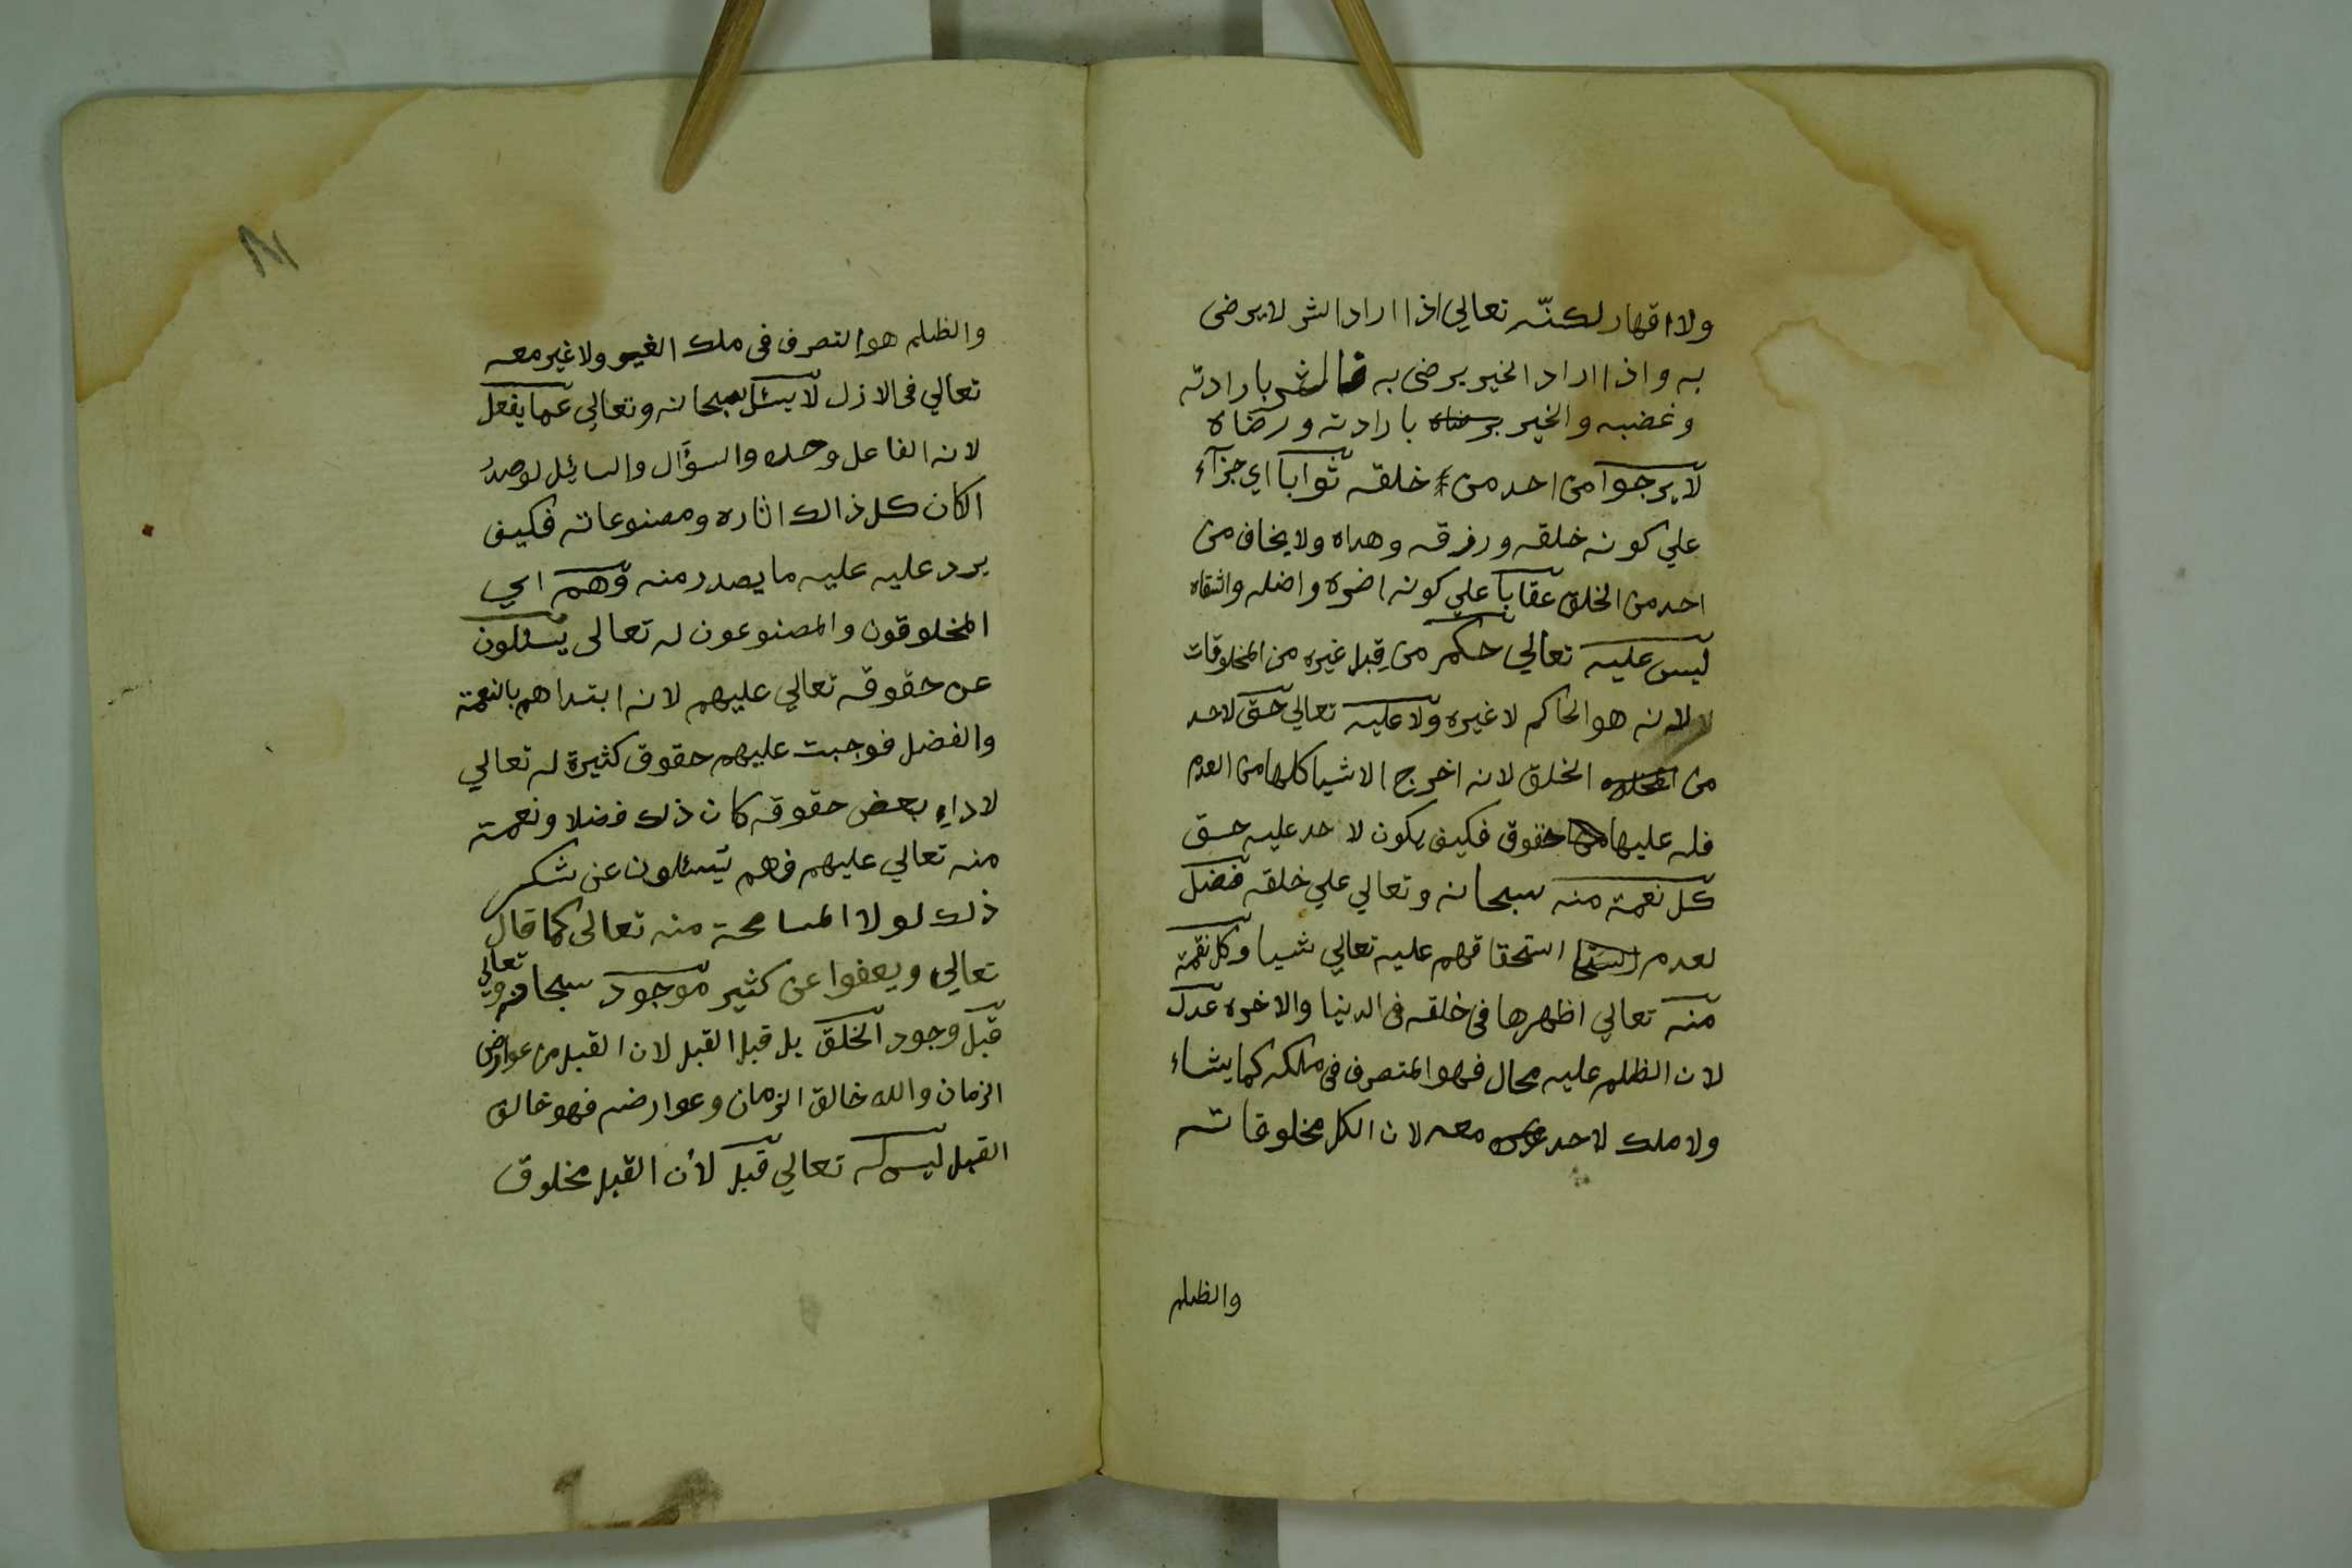 ولا اقهار لكنّه تعالي اذا اراد الشر لا يرضى
به واذا اراد الخير يرضى به فالشر بارادته
وغضبه والخير برضاه بارادته ورضاه
لا يرجوا من احد من خلقه ثوابا اي جزآء
علي كونه خلقه ورزقه وهداه ولا يخاف من
احد من الخلق عقابا علي كونه اضره واضله واشقاه
ليس عليه تعالي حكم من قِبل غيره من المخلوقات
لانه هو الحاكم لا غيره ولا عليه تعالي حق لاحد
من الخلق لانه اخرج الاشيا كلها من العدم
فله عليها حقوق فكيف يكون لاحد عليه حق
كل نعمة منه سبحانه وتعالي علي خلقه فضل
لعدم استحقاقهم عليه تعالي شيا وكل نقمة
منه تعالي اظهرها في خلقه في الدنيا والاخره عدل
لان الظلم عليه محال فهو المتصرف في ملكه كما يشاء
ولا ملك لاحد معه لان الكل مخلوقاته
والظلم
والظلم هو التصرف في ملك الغير ولا غير معه
تعالي في الازل لا يسئل سبحانه وتعالي عما يفعل
لانه الفاعل وحده والسؤال والسائل لو صدر
لكان كل ذالك اثاره ومصنوعاته فكيف
يرد عليه عليه ما يصدر منه وهم اي
المخلوقون والمصنوعون له تعالى يسئلون
عن حقوقه تعالي عليهم لانه ابتداهم بالنعمة
والفضل فوجبت عليهم حقوق كثيرة له تعالي
لاداء بعض حقوقه كان ذلك فضلا ونعمة
منه تعالي عليهم فهم يسئلون عن شكر
ذلك لولا المسامحة منه تعالى كما قال
تعالي ويعفوا عن كثير موجود سبحانه وتعالي
قبل وجود الخلق بل قبل القبل لان القبل من عوارض
الزمان والله خالق الزمان وعوارضه فهو خالق
القبل ليس له تعالي قبل لأن القبل مخلوق